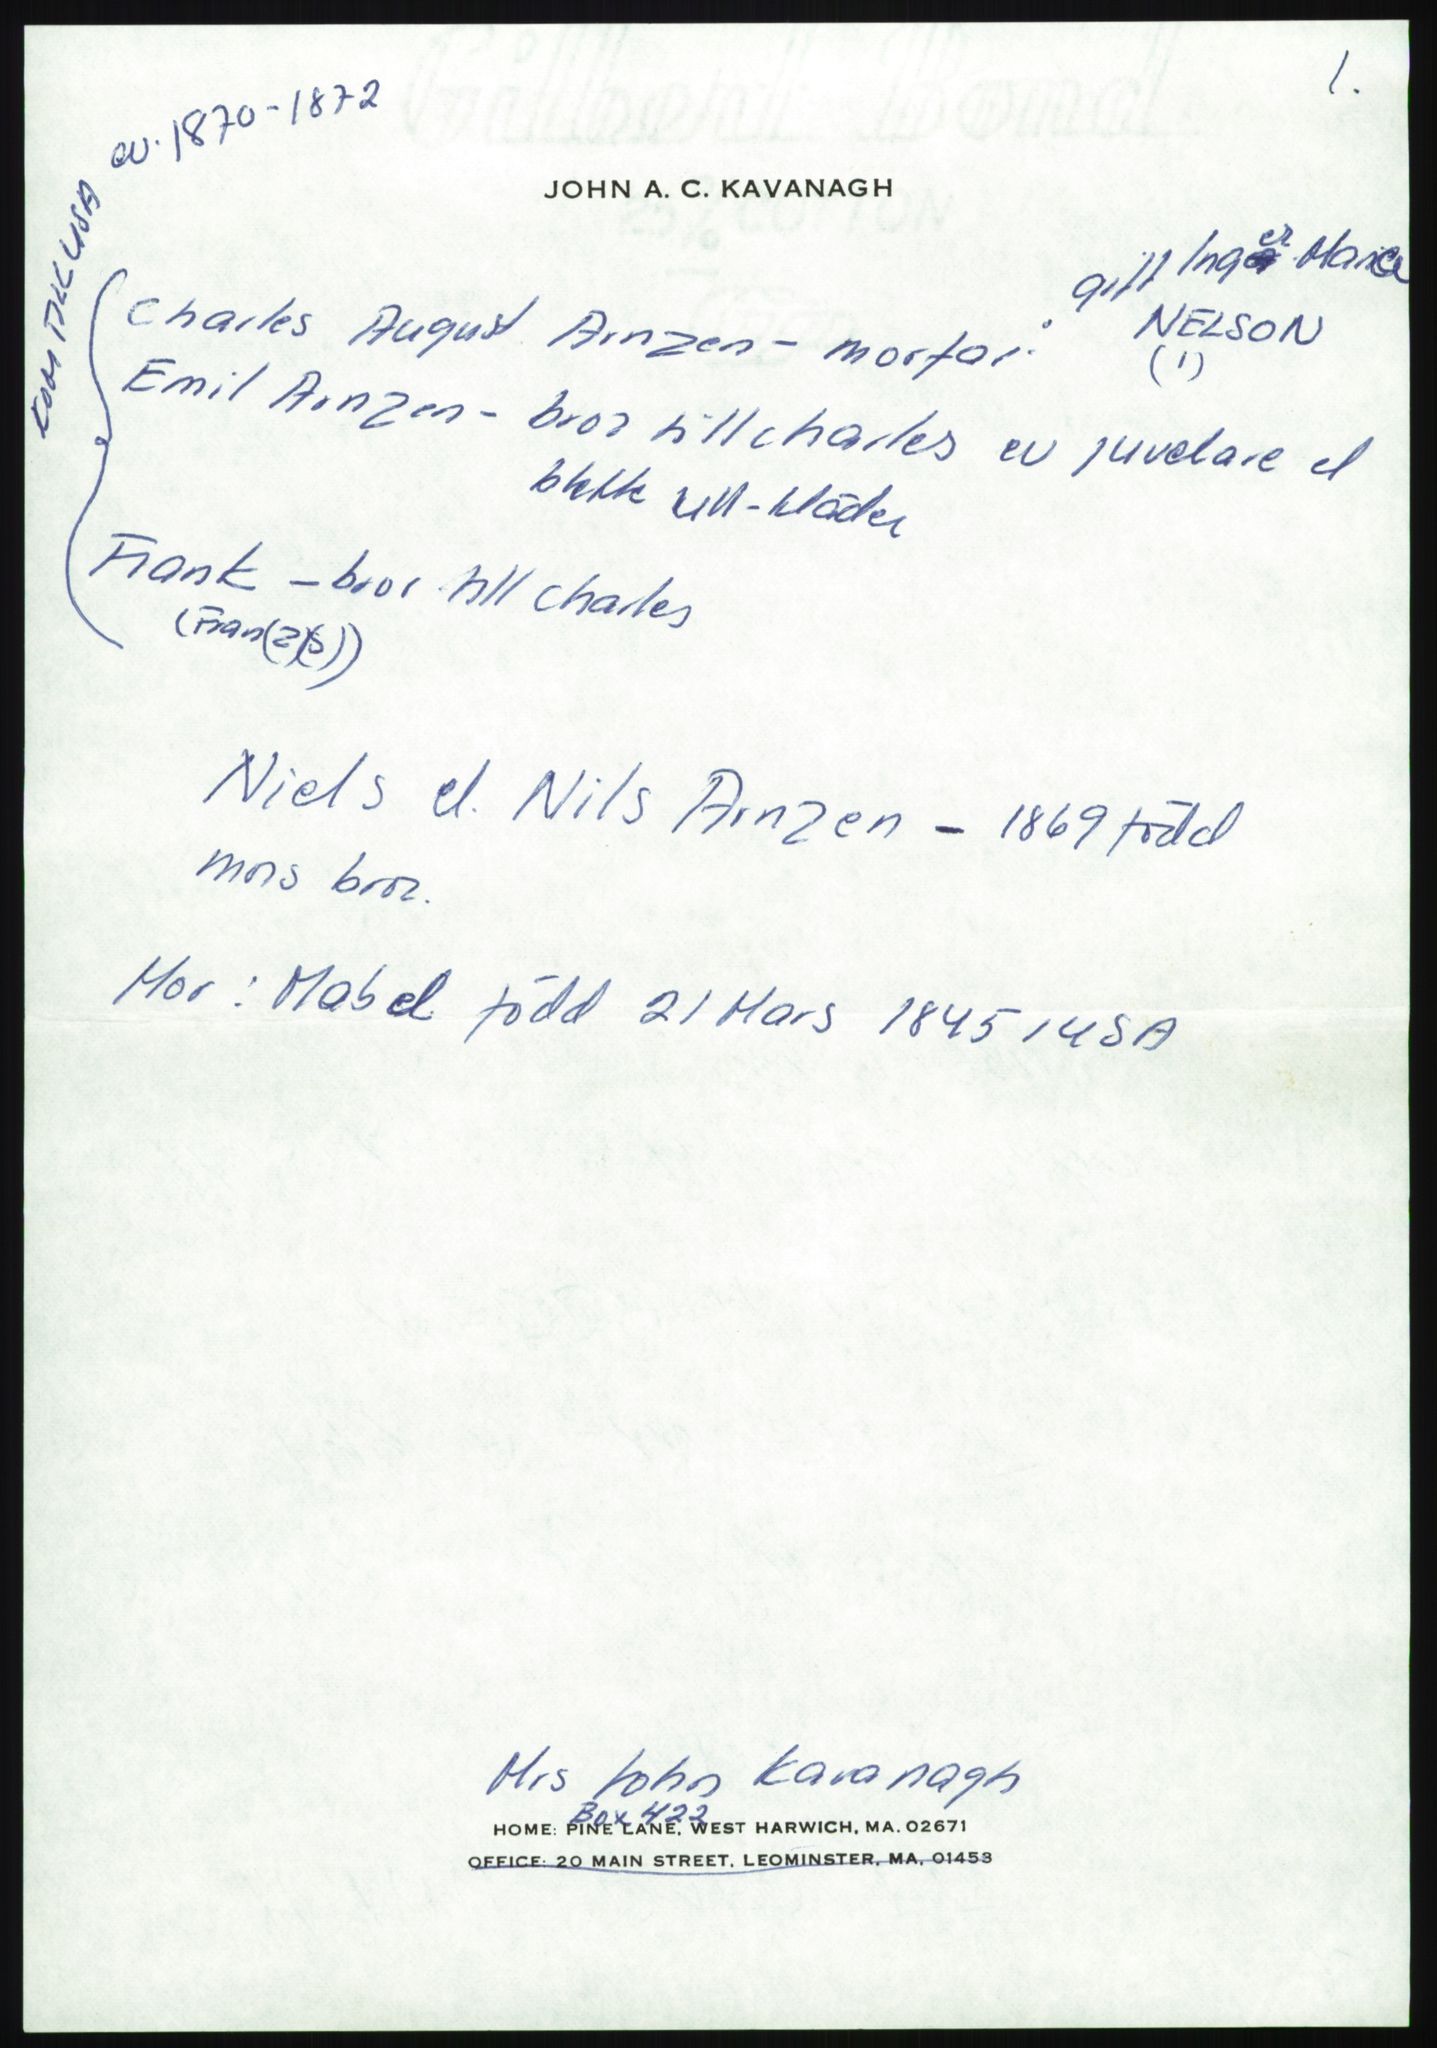 1.
ev. 1870-1872
KOM TILL USA
JOHN A. C. KAVANAGH
gift Inger Marie
NELSON
(1)
Charles August Arnzen - morfar.
Emil Arnzen - bror till charles ev juvelare el
ull-kläder
Frank - bror till charles
(Fran(z)(s))
Niels el. Nils Arnzen - 1869 född
mors bror.
Mor: Mabel född 21 Mars 1845 i USA
Mrs John Kavanagh
Box 422
HOME: PINE LANE, WEST HARWICH, MA. 02671
OFFICE: 20 MAIN STREET, LEOMINSTER, MA. 01453